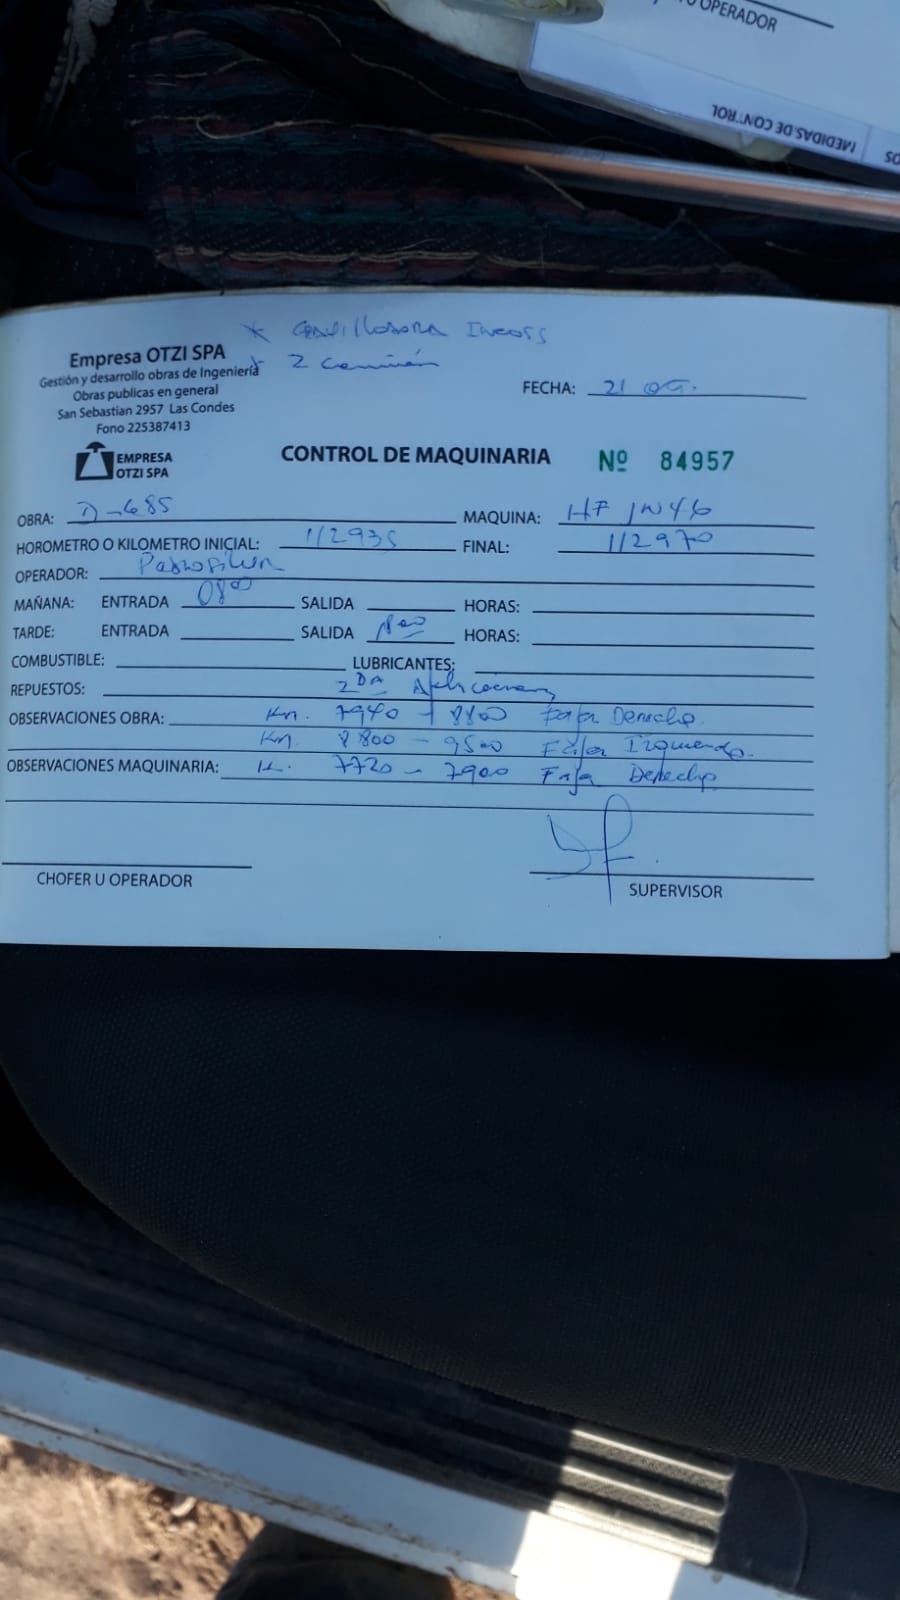 O OPERADOR
MEDIDAS DE CONTROL
OS
* Inecoss
* 2 Camión
Empresa OTZI SPA
Gestión y desarrollo obras de Ingeniería
Obras publicas en general
San Sebastian 2957 Las Condes
Fono 225387413
FECHA: 21 OCT.
EMPRESA
OTZI SPA
CONTROL DE MAQUINARIA Nº 84957
OBRA: D-685 MAQUINA: HF JW46
HOROMETRO O KILOMETRO INICIAL: 112935 FINAL: 112970
OPERADOR:
MAÑANA: ENTRADA 0800 SALIDA HORAS:
TARDE: ENTRADA SALIDA 1800 HORAS:
COMBUSTIBLE: LUBRICANTES:
REPUESTOS: 2DA Aplicación
OBSERVACIONES OBRA: Km. 7940 - 8800 Faja Derecha
Km. 8800 - 9500 Faja Izquierda.
OBSERVACIONES MAQUINARIA: K. 7720 - 7900 Faja Derecha
CHOFER U OPERADOR
SUPERVISOR